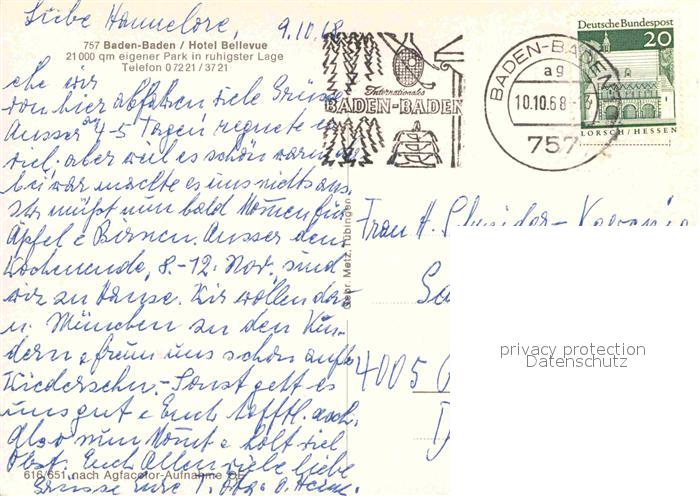 Liebe Hannelore, 9.10.68
757 Baden-Baden / Hotel Bellevue
21 000 qm eigener Park in ruhigster Lage
Telefon 07221 / 3721
ehe wir
von hier abfahren viele Grüsse
Ausser an 4-5 Tagen regnete es
viel, aber weil es schön warm
bei war machte es uns nichts aus.
Ihr müßt nun bald kommen für
Äpfel & Birnen. Ausser dem
Wochenende, 8.-12. Nov., sind
wir zu Hause. Wir wollen da
n. München zu den Kin-
dern & freuen uns schon aufs
Wiedersehn. - Sonst geht es
uns gut & Euch hofftl. auch.
Also nun kommt & holt viel
Obst. Euch Allen viele liebe
Grüsse Eure T. & O.
616/651 nach Agfacolor-Aufnahme
Gebr. Metz, Tübingen
Internationales
BADEN-BADEN
BADEN-BADEN
ag
10.10.68
757
Deutsche Bundespost
20
LORSCH / HESSEN
Frau H.
4005
privacy protection
Datenschutz